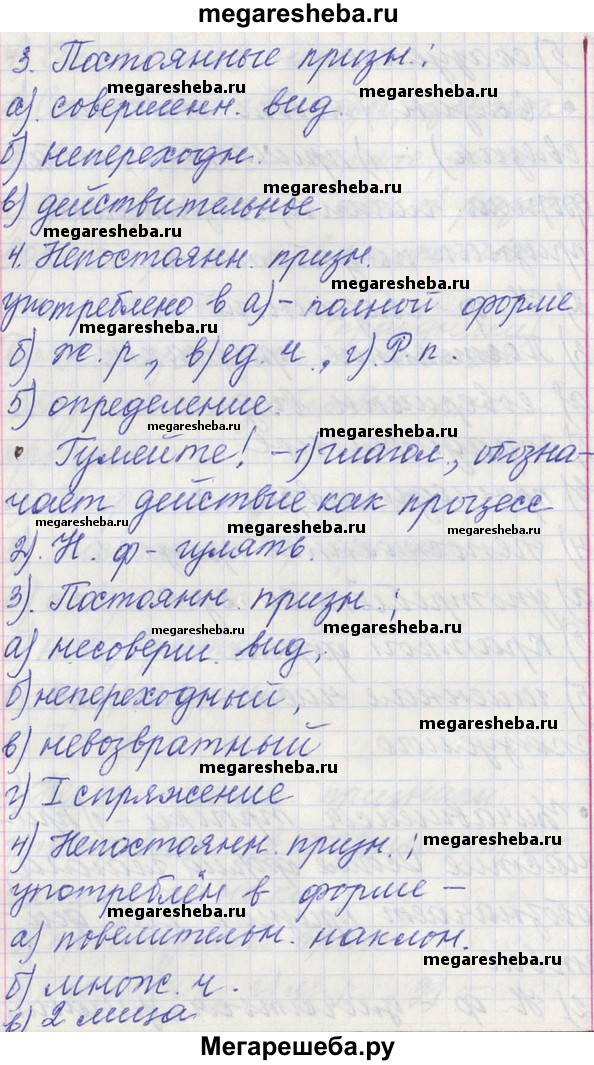 megaresheba.ru
3. Постоянные призн.:
megaresheba.ru
megaresheba.ru
а) совершенн. вид.
megaresheba.ru
б) непереходн.
megaresheba.ru
в) действительное
megaresheba.ru
4. Непостоянн. призн.
megaresheba.ru
употреблено в а) – полной форме
megaresheba.ru
б) ж. р., в) ед. ч., г) Р. п.
megaresheba.ru
5) определение.
megaresheba.ru
• Гумейте! – 1) глагол, обозна-
megaresheba.ru
чает действие как процесс
megaresheba.ru
megaresheba.ru
megaresheba.ru
2). Н. ф – гулять.
3). Постоянн. призн.:
megaresheba.ru
megaresheba.ru
а) несоверш. вид,
б) непереходный,
megaresheba.ru
в) невозвратный
megaresheba.ru
г) I спряжение
megaresheba.ru
4) Непостоянн. призн.:
употреблён в форме –
megaresheba.ru
а) повелительн. наклон.
megaresheba.ru
б) множ. ч.
в) 2 лица
Мегарешеба.ру